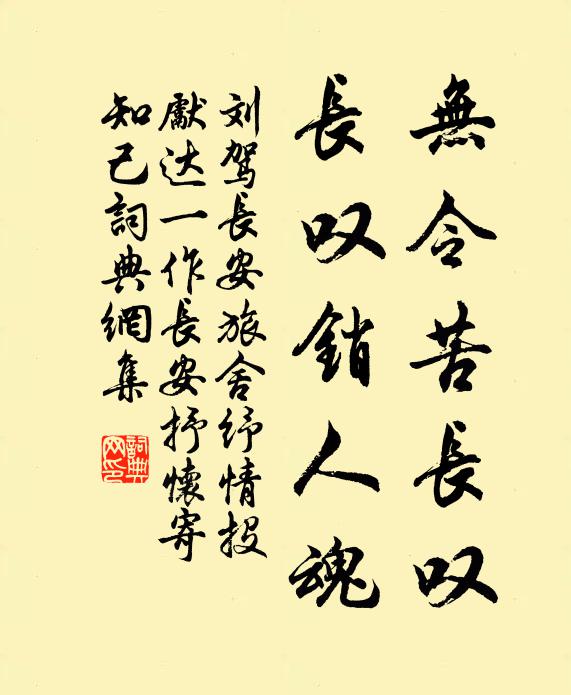 無令苦長叹
長叹銷人魂
刘驾長安旅舍纾情投
獻达一作長安抒懷寄
知己詞典網集
詞典网印